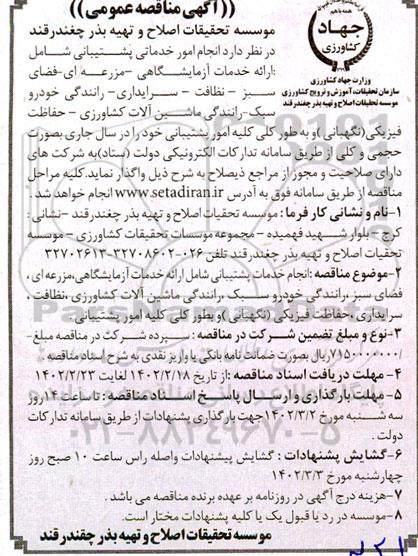 ((آگهی مناقصه عمومی))
جهاد
کشاورزی
وزارت جهاد کشاورزی
سازمان تحقیقات، آموزش و ترویج کشاورزی
موسسه تحقیقات اصلاح و تهیه بذر چغندرقند
موسسه تحقیقات اصلاح و تهیه بذر چغندرقند
در نظر دارد انجام امور خدماتی پشتیبانی شامل
:ارائه خدمات آزمایشگاهی -مزرعه ای-فضای
سبز - نظافت - سرایداری- رانندگی خودرو
سبک-رانندگی ماشین آلات کشاورزی - حفاظت
فیزیکی (نگهبانی )و به طور کلی کلیه امور پشتیبانی خود را در سال جاری بصورت
حجمی و کلی از طریق سامانه تدارکات الکترونیکی دولت (ستاد)به شرکت های
دارای صلاحیت و مجوز از مراجع ذیصلاح به شرح ذیل واگذار نماید.کلیه مراحل
مناقصه از طریق سامانه فوق به آدرس www.setadiran.ir انجام خواهد شد .
۱-نام و نشانی کار فرما : موسسه تحقیات اصلاح و تهیه بذر چغندرقند -نشانی :
کرج - بلوار شهید فهمیده - مجموعه موسسات تحقیقات کشاورزی - موسسه
تحقیات اصلاح و تهیه بذر چغندرقند تلفن ۰۲۶-۳۲۷۰۸۶۰۲-۳۲۷۰۲۶۱۳
۲-موضوع مناقصه :انجام خدمات پشتیبانی شامل ارائه خدمات آزمایشگاهی،مزرعه ای ،
فضای سبز ،رانندگی خودرو سبک ،رانندگی ماشین آلات کشاورزی ،نظافت ،
سرایداری ،حفاظت فیزیکی (نگهبانی )و بطور کلی کلیه امور پشتیبانی.
۳-نوع و مبلغ تضمین شرکت در مناقصه : سپرده شرکت در مناقصه مبلغ-
/۷۱۵۰۰۰۰۰۰۰ریال بصورت ضمانت نامه بانکی یا واریز نقدی به شرح اسناد مناقصه
۴- مهلت دریافت اسناد مناقصه :از تاریخ ۱۴۰۲/۲/۱۸ لغایت ۱۴۰۲/۲/۲۳
۵- مهلت بارگذاری و ارسال پاسخ اسناد مناقصه : تا ساعت ۱۴روز
سه شنبه مورخ ۱۴۰۲/۳/۲جهت بارگذاری پشنهادات از طریق سامانه تدارکات
دولت .
۶-گشایش پشنهادات : گشایش پیشنهادات واصله راس ساعت ۱۰ صبح روز
چهارشنبه مورخ ۱۴۰۲/۳/۳
۷-هزینه درج آگهی در روزنامه بر عهده برنده مناقصه می باشد .
۸-موسسه در رد یا قبول یک یا کلیه پشنهادات مختار است.
موسسه تحقیقات اصلاح و تهیه بذر چغندرقند
۰۲۱-۸۸۳۴۹۶۷۰-۵